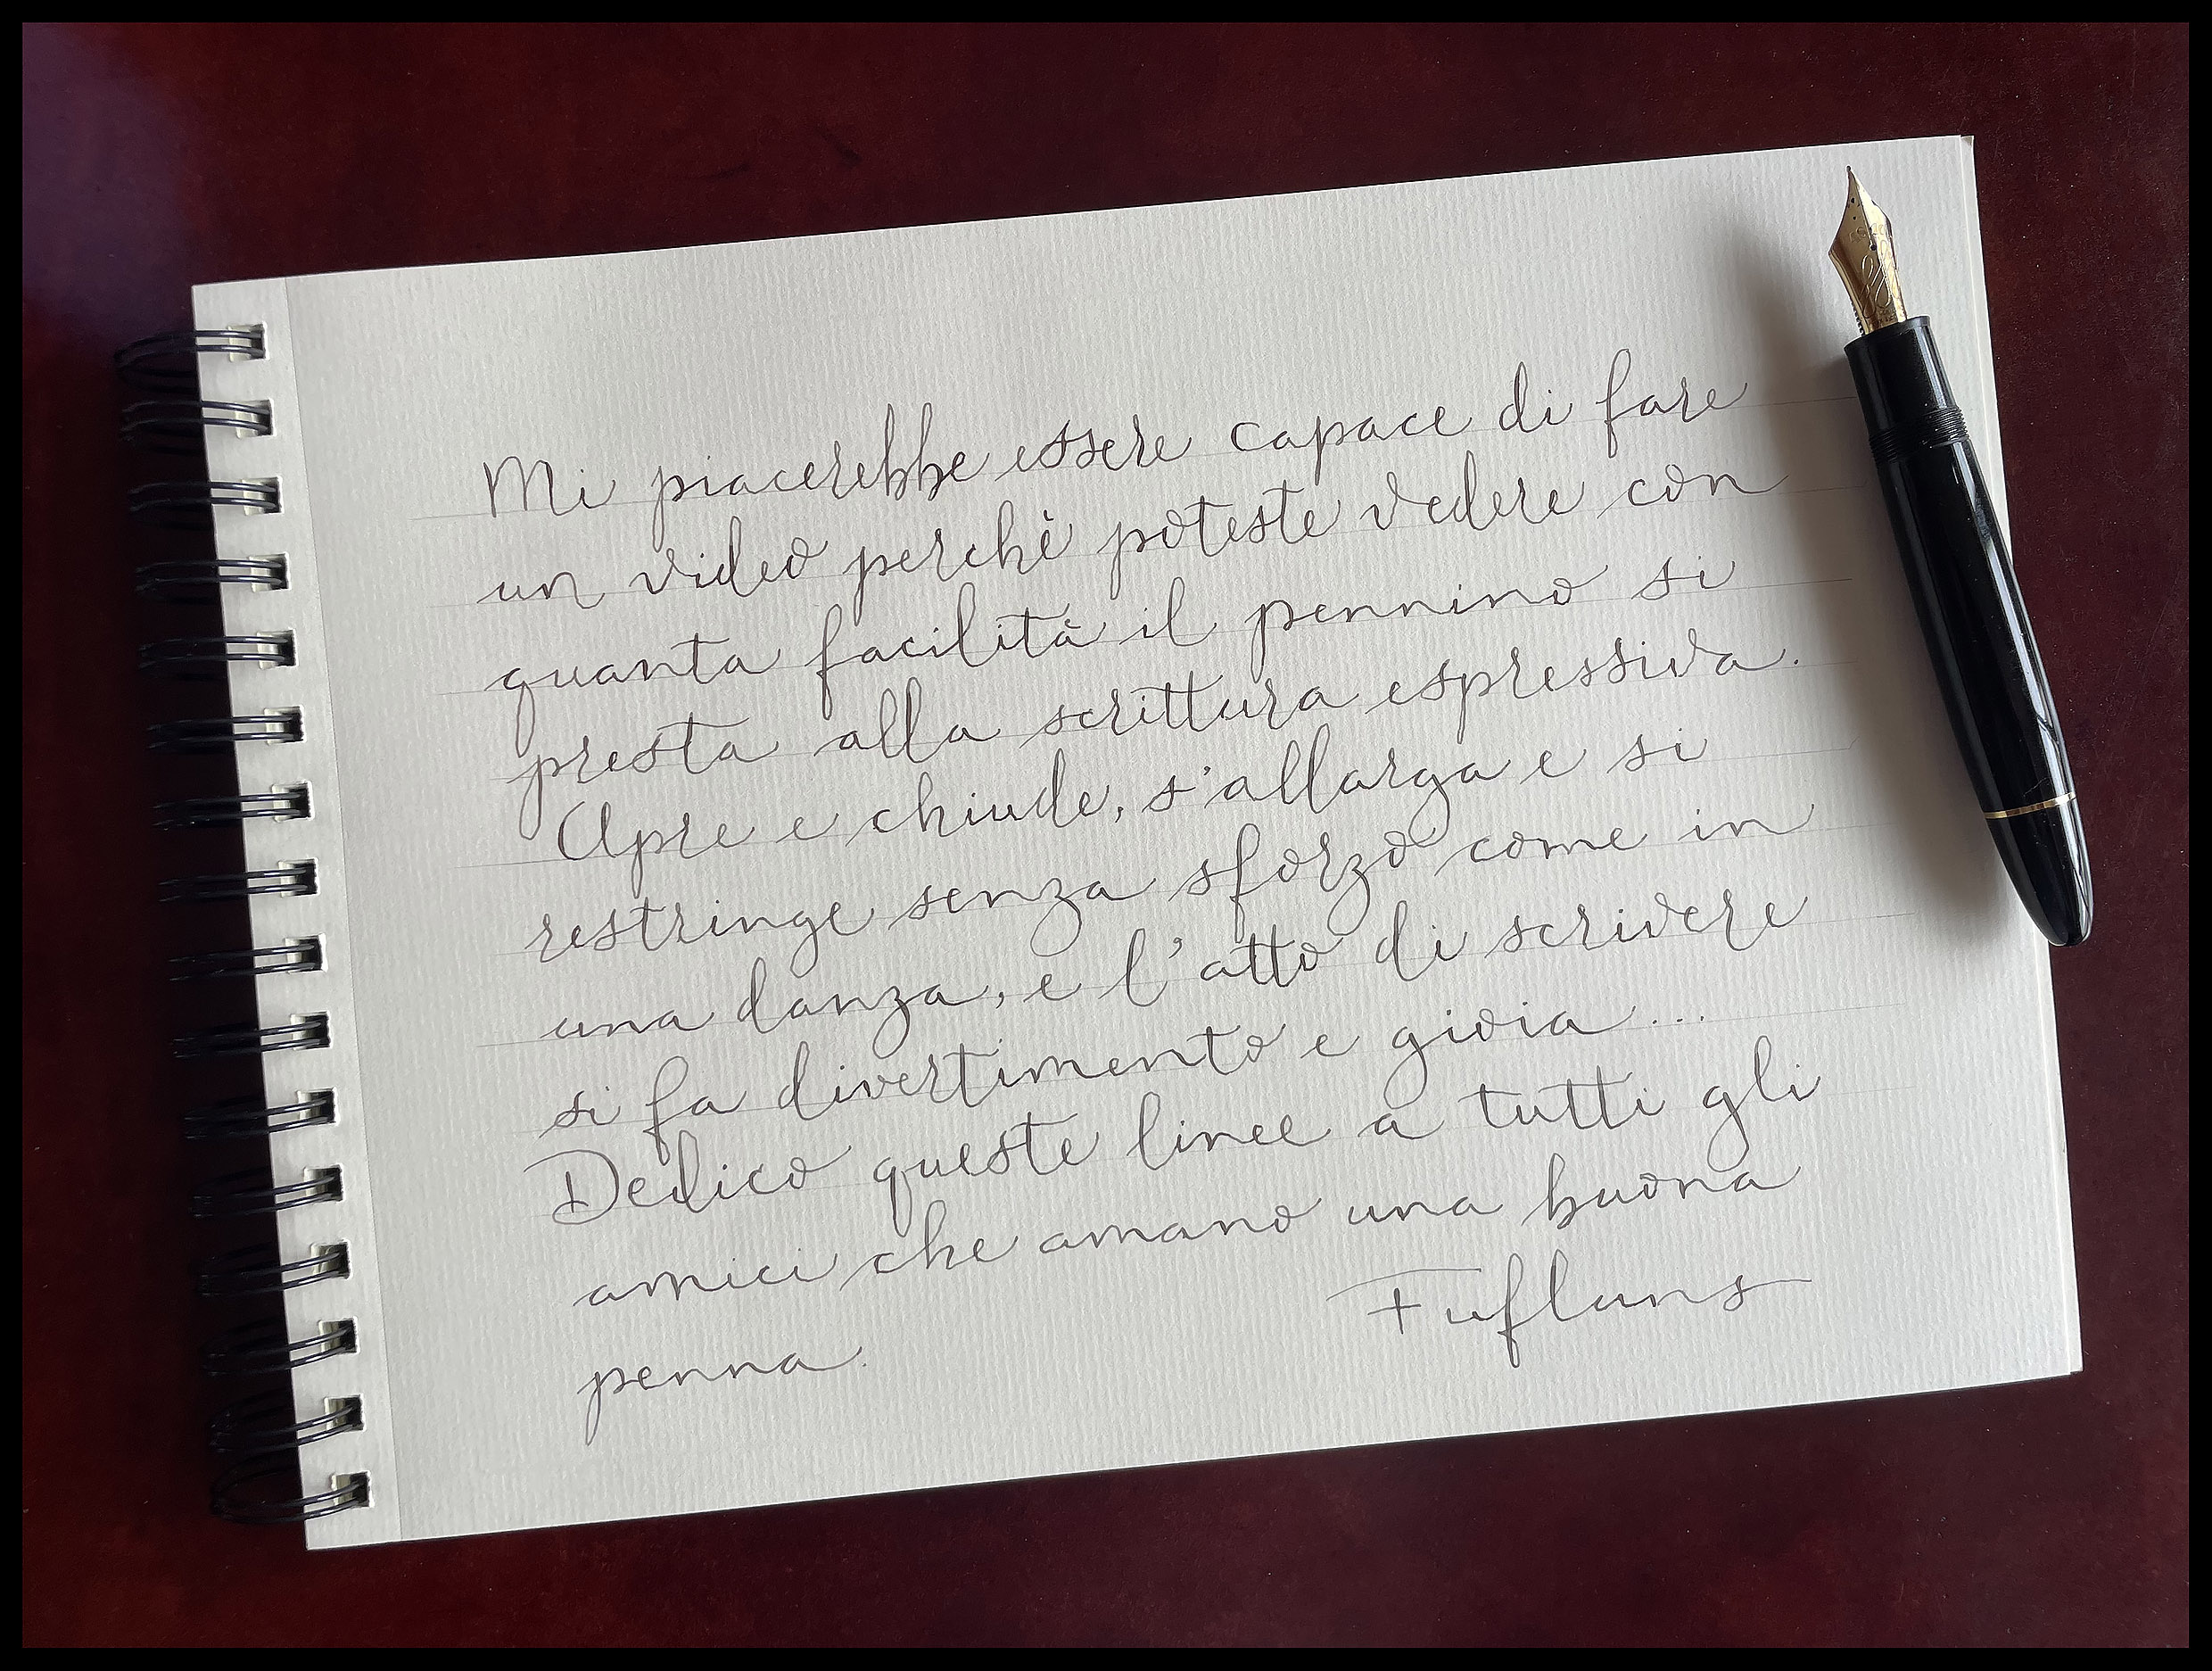 Mi piacerebbe essere capace di fare
un video perchè poteste vedere con
quanta facilità il pennino si
presta alla scrittura espressiva.
Apre e chiude, s'allarga e si
restringe senza sforzo come in
una danza, e l'atto di scrivere
si fa divertimento e gioia...
Dedico queste linee a tutti gli
amici che amano una buona
penna.
Fufluns